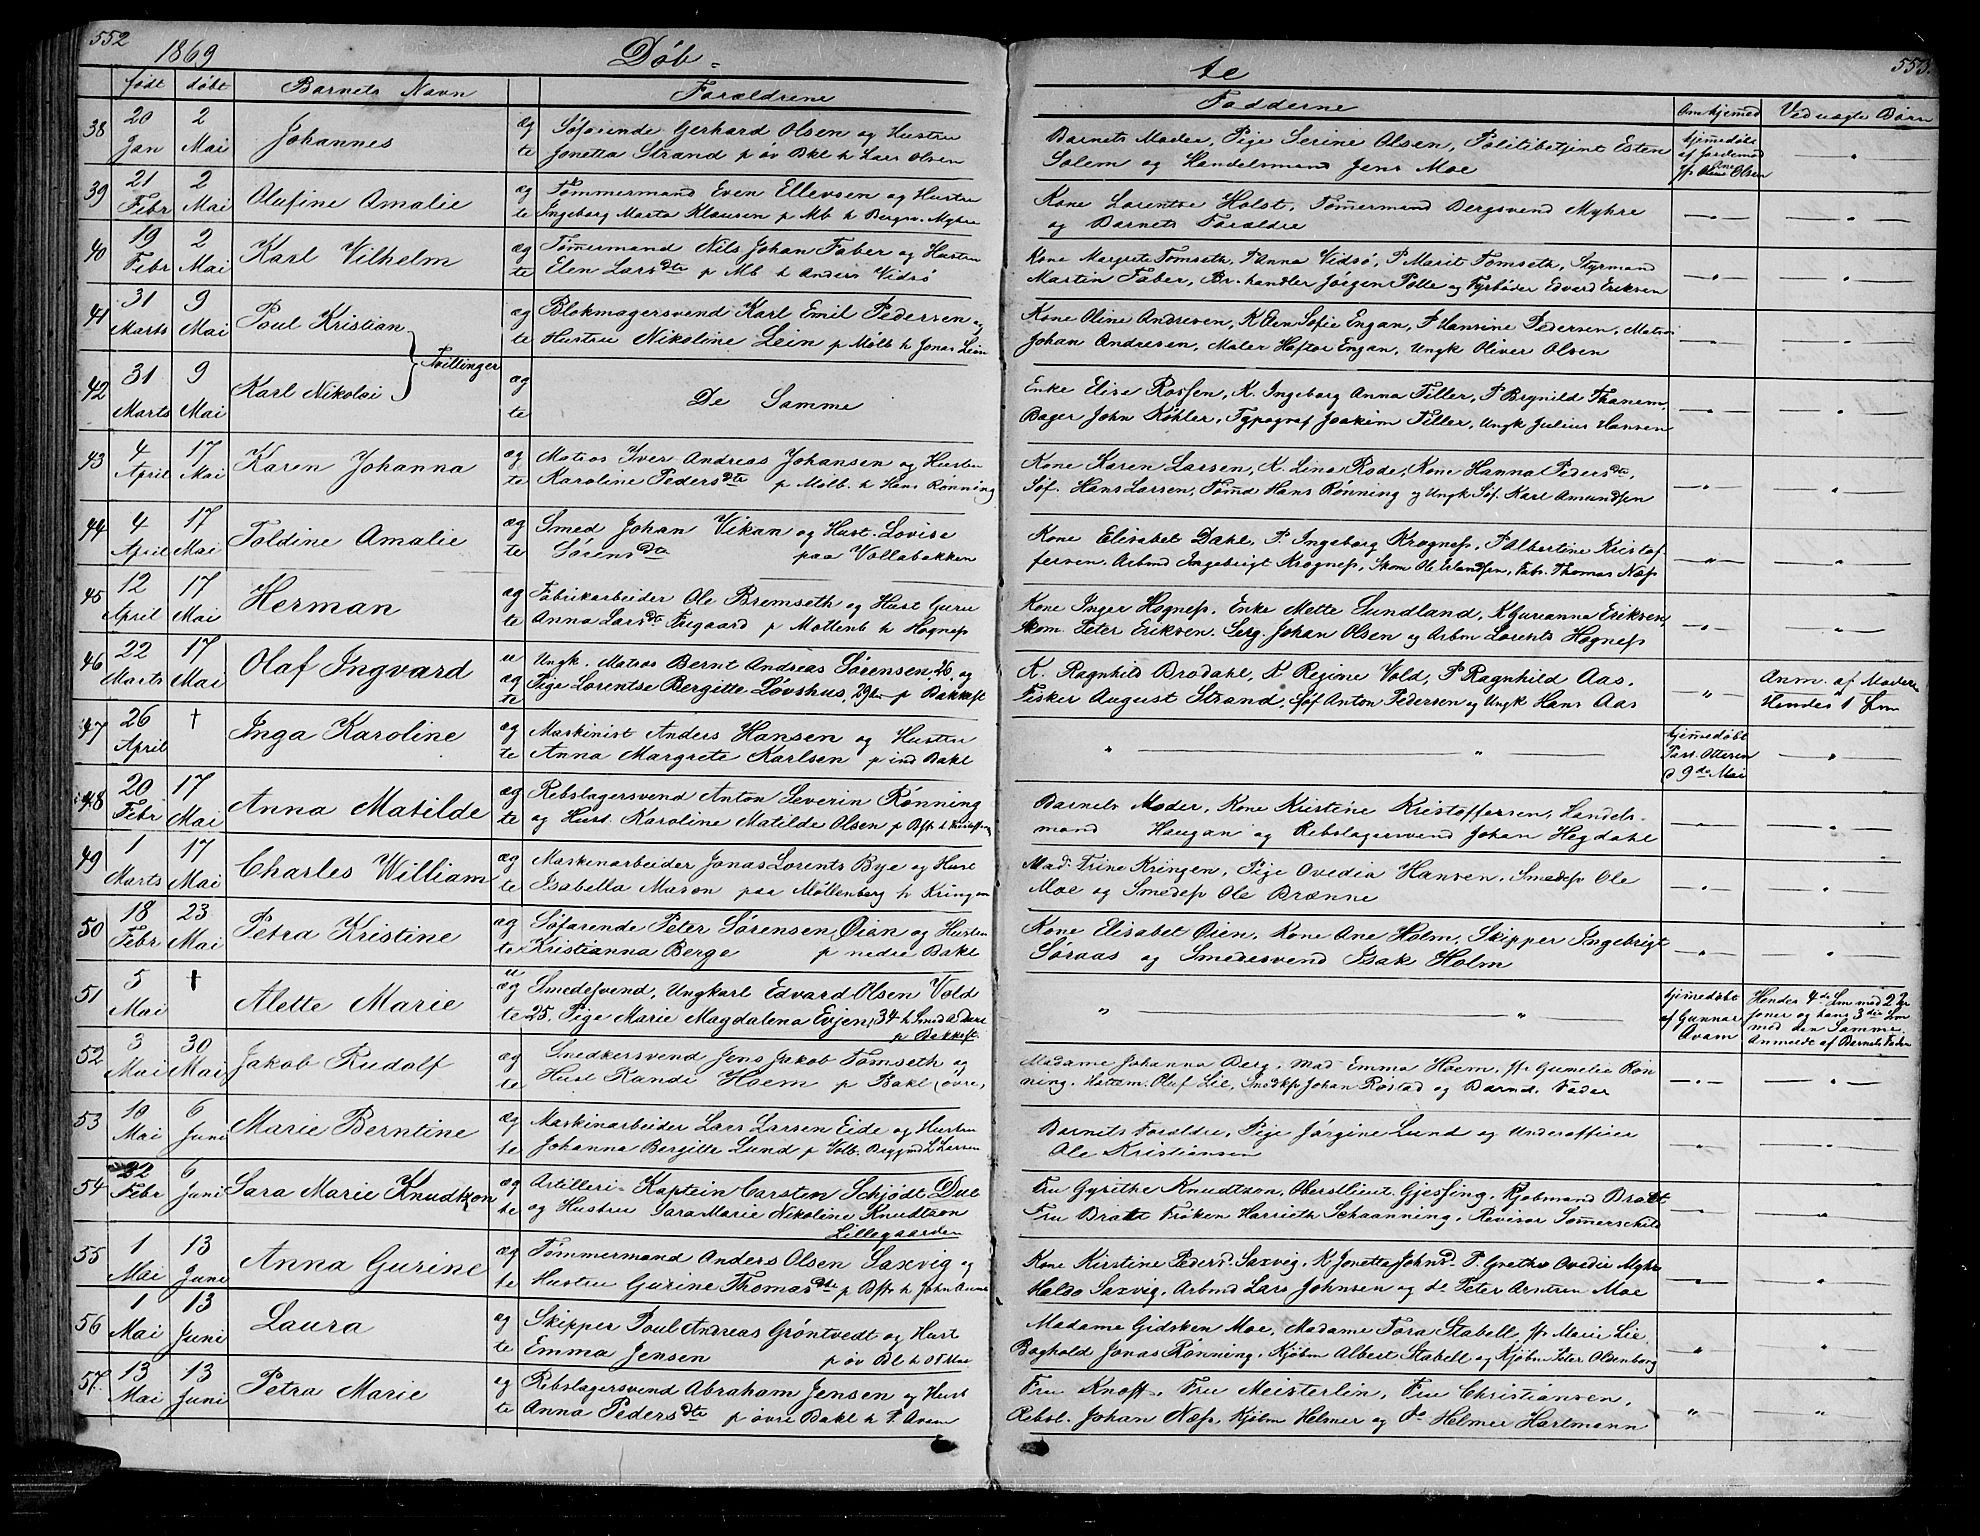 552
1869
Døb-
født døbt Barnets Navn Forældrene
38 20 Jan 2 Mai Johannes ægte Søfarende Gerhard Olsen og Hustru
Jonetta Strand p øv Bakl h Lars Olsen
39 21 Febr 2 Mai Olufine Amalie ægte Tømmermand Even Ellevsen og Hustru
Ingeborg Marta Klausen p Mb h Bergsv. Myhre
40 19 Febr 2 Mai Karl Vilhelm ægte Tømermand Nils Johan Faber og Hustru
Elen Larsdtr p Mb h Anders Vidsø
41 31 Marts 9 Mai Poul Kristian ægte Blokmagersvend Karl Emil Pedersen og
Hustru Nikoline Lein p Mølb h Jonas Lein
Tvillinger
42 31 Marts 9 Mai Karl Nikolai ægte De Samme
43 4 April 17 Mai Karen Johanna ægte Matros Iver Andreas Johansen og Hustru
Karoline Pedersdtr p Mølb. h Hans Rønning
44 4 April 17 Mai Toldine Amalie ægte Smed Johan Vikan og Hust. Lovise
Sørensdtr paa Vollabakken
45 12 April 17 Mai Herman ægte Fabrikarbeider Ole Bremseth og Hust Guru
Anna Larsd. p Møllenb h Hognes
46 22 Marts 17 Mai Olaf Ingvard uægte Ungk. Matros Bernt Andreas Sørensen, 26, og
Pige Lorentse Bergitte Løvshus, 29 p Bakkeft
47 26 April † Inga Karoline ægte Maskinist Anders Hansen og Hustru
Anna Margrete Karlsen p ind Bakl
48 20 Febr 17 Mai Anna Matilde ægte Rebslagersvend Anton Severin Rønning
og Hust. Karoline Matilde Olsen p Bft h
49 1 Marts 17 Mai Charles William ægte Maskinarbeider Jonas Lorents Bye og Hust
Isabella Mason paa Møllenberg h Kringen
50 18 Febr 23 Mai Petra Kristine ægte Søfarende Peter Sørensen Øian og Hustru
Kristianna Berge p nedre Bakl
51 5 Mai † Alette Marie uægte Smedesvend, Ungkarl Edvard Olsen Vold
25. Pige Marie Magdalena Evjen, 34 h Smed A Dahl
p Bakkeft.
52 3 Mai 30 Mai Jakob Rudolf ægte Snedkersvend Jens Jakob Tomseth og
Hust Randi Hoem p Bakl (øvre)
53 10 Mai 6 Juni Marie Berntine ægte Maskinarbeider Lars Larsen Eide og Hustru
Johanna Bergitte Lund p Volb. L Larsen
54 22 Febr 6 Juni Sara Marie Knudtzon ægte Artilleri-Kaptein Carsten Schjødt Due
og Hustru Sara Marie Nikoline Knudtzon
Lillegaarden
55 1 Mai 13 Juni Anna Gurine ægte Tømmermand Anders Olsen Saxvig og
Hustru Gurine Thomasdtr p Bft h John
56 1 Mai 13 Juni Laura ægte Skipper Poul Andreas Grøntvedt og Hust
Emma Jensen p øv Bl h Ol Moe
57 13 Mai 13 Juni Petra Marie ægte Rebslagersvend Abraham Jensen og Hust
Anna Pedersdtr p øvre Bakl h P. Aven
553.
te
Fadderne Om hjemmed Ved uægte Børn
Barnets Moder, Pige Serine Olsen, Politibetjent Esten
Solem og Handelsmand Jens Moe
hjemedøbt
af Jordemod
Olsen
Kone Lorentse Holst, Tømermand Bergsvend Myhre
og Barnets Forældre
Kone Margrete Tomseth, Anna Vidsø, P Marit Tomseth, Styrmand
Martin Faber, Br. handler Jørgen Polle og Fyrbøder Edvard Eriksen
Kone Oline Andresen, K Elen Sofie Engan, P Hansine Pedersen, Matros
Johan Andresen, Maler Haftor Engan, Ungk Oliver Olsen
Enke Elise Rossen, K. Ingeborg Anna Tiller, P Brynild Thanem,
Bager John Köhler, Typograf Joakim Tiller, Ungk Julius Hansen
Kone Karen Larsen, K. Lina Rode, Kone Hanna Pedersdtr,
Søf. Hans Larsen, Tømd Hans Rønning og Ungk Søf. Karl Amundsen
Kone Elisabet Dahl, P. Ingeborg Krognes, P Albertine Kristof
fersen. Arbmd Ingebrigt Krognes, Skom Ole Erlandsen, Fabr. Thomas Næs
Kone Inger Hognes, Enke Mette Sundland, K Gurianna Eriksen,
Skom. Peter Eriksen. Serg. Johan Olsen og Arbm Lorents Hognes
K. Ragnhild Brodahl, K Regine Vold, P Ragnhild Aas,
Fisker August Strand, Søf Anton Pedersen og Ungk Hans Aas
Anm. af Moderen
Hendes 1 Lm
hjemedøbt
Past. Ottesen
d 9de Mai
Barnets Moder, Kone Kristine Kristoffersen, Handels-
mand Haugan og Rebslagersvend Johan Hegdahl
Mad. Trine Kringen, Pige Ovedia Hansen, Smedes Ole
Moe og Smedes Ole Brænne
Kone Elisabet Øien, Kone Ane Holm, Skipper Ingebrigt
Søraas og Smedesvend Isak Holm
hjemedøbt
af Gunnar
Hendes 4de Lm med 2
og hans 3die Lm
med den Samme.
Anmeldt af Barnets Fader
Madame Johanna Berg, Mad Emma Hoem, Gunelie Røn
ning. Olaf Lie, Snedks Johan Røstad og Barnets Fader
Barnets Forældre, Pige Jørgine Lund og Underofficer
Ole Kristiansen
Fru Gyrithe Knudtzon, Oberstlieut. Gjessing, Kjøbmand Bratt
Fru Bratt Frøken Harrieth Schaanning, Revisor Sømerschild
Kone Kirstine Pedersd. Saxvig, K Jonetta Johnsd. P. Grethe Ovedie Myhre
Saxvig, Arbmd Lars Johnsen og do Peter Arntsen Moe
Madame Gidsken Moe, Madame Tora Stabell, Marie Lie,
Boghold Jonas Rønning, Kjøbm Albert Stabell og Kjøbm Peter Olsenborg
Fru Knoff, Fru Meisterlin, Fru Christiansen,
Rebsl. Johan Næs, Kjøbm Helmer og do Helmer Hartmann